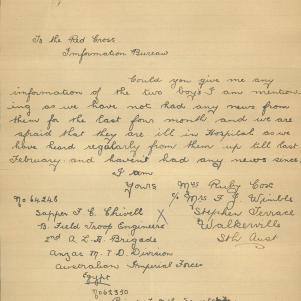 To the Red Cross
Imformation Bureau
Could you give me any
information of the two boys I am mention
ing as we have not had any news from
them for the last four month and we are
afraid that they are ill in Hospital as we
have heard regularly from them up till last
February and havent had any news since.
I am
Yours Mrs Ruby Cox
No 64248 c/o Mrs F C Wimble
Sapper F. C. Chivell X Stephen Terrace
B. Field Troop Engineers Walkerville
2nd A L H Brigade Sth Aust
Anzac M T D Division
Australian Imperial Force
Egypt
No 62350